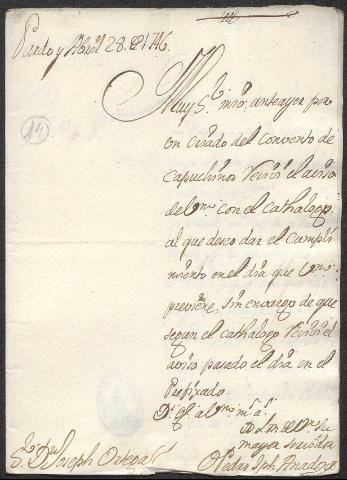 Pardo y Abril 28 de 1746.
14
Muy Sr. mio, anteayer por
un criado del convento de
Capuchinos Recivi el aviso
de Vm. con el Cathalogo,
al que deseo dar el cumpli
miento en el dia que Vm.
previene, sin envargo de que
segun el cathalogo Recivi el
aviso pasado el dia en el
Prefixado.
D. ge. a Vm. m. a.
B. l. m. de Vm. su
mayor servidor
Pedro Jph
Sr. Dn. Joseph Ortega